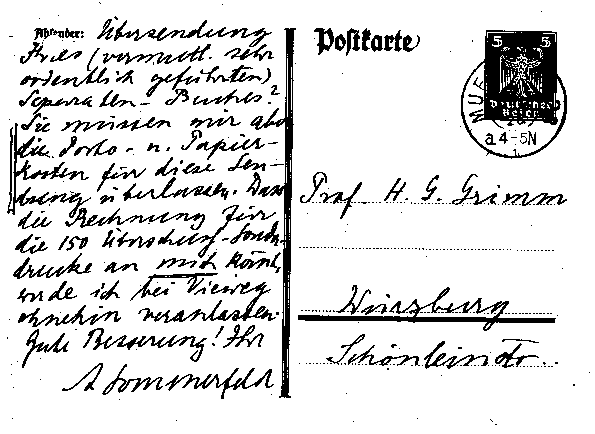 Absender: Übersendung
Ihres (vermutl. sehr
ordentlich geführten)
Separaten-Buches?
Sie müssen mir aber
die Porto- u. Papier-
kosten für diese Sen-
dung überlassen. Dass
die Rechnung für
die 150 Überschuss-Sonder-
drucke an mich kommt,
werde ich bei Vieweg
ohnehin veranlassen.
Gute Besserung! Ihr
A Sommerfeld
Postkarte
5 5
Deutsches
Reich
MUE
a 4-5N
1
Prof H. G. Grimm
Würzburg
Schönleinstr.